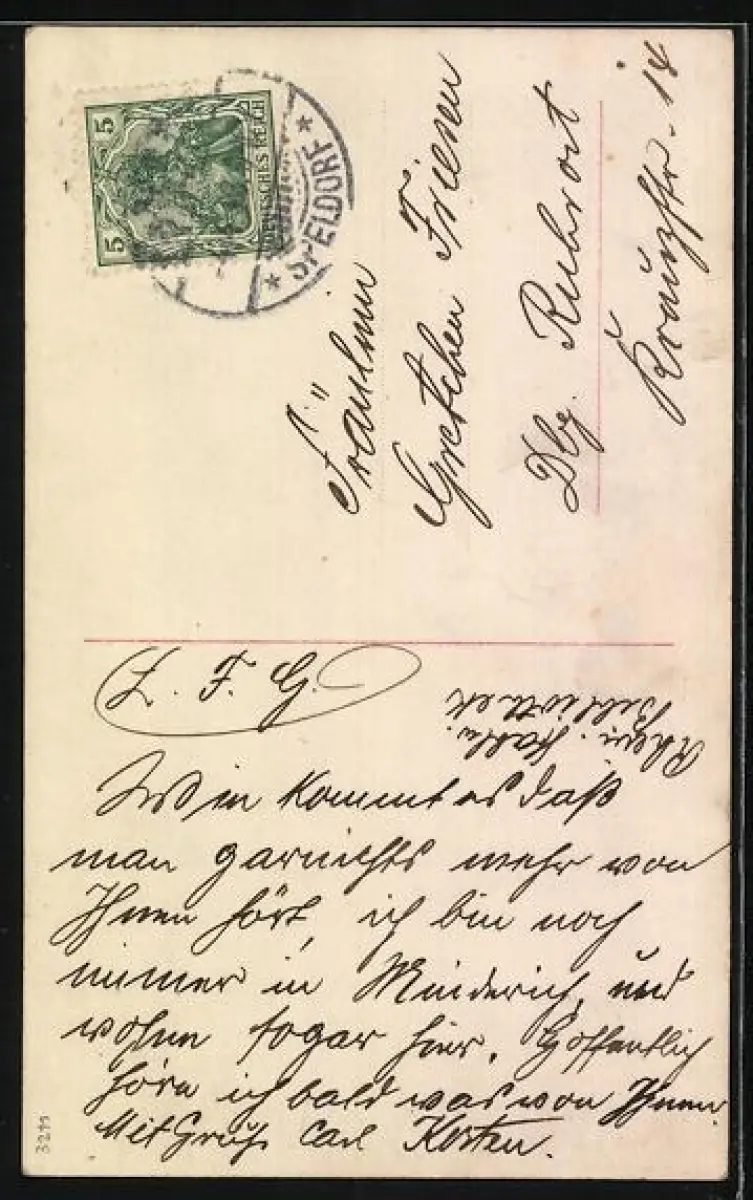 5 5
DEUTSCHES REICH
* SPELDORF *
Fräulein
Gretchen Friemen
Dbg. Ruhrort
Krauzstr. 14
L. F. G.
Wie kommt es daß
man garnichts mehr von
Ihnen hört, ich bin noch
immer in Meiderich, und
wohne sogar hier. Hoffentlich
höre ich bald was von Ihnen.
Mit Gruß Carl Korten.
3299